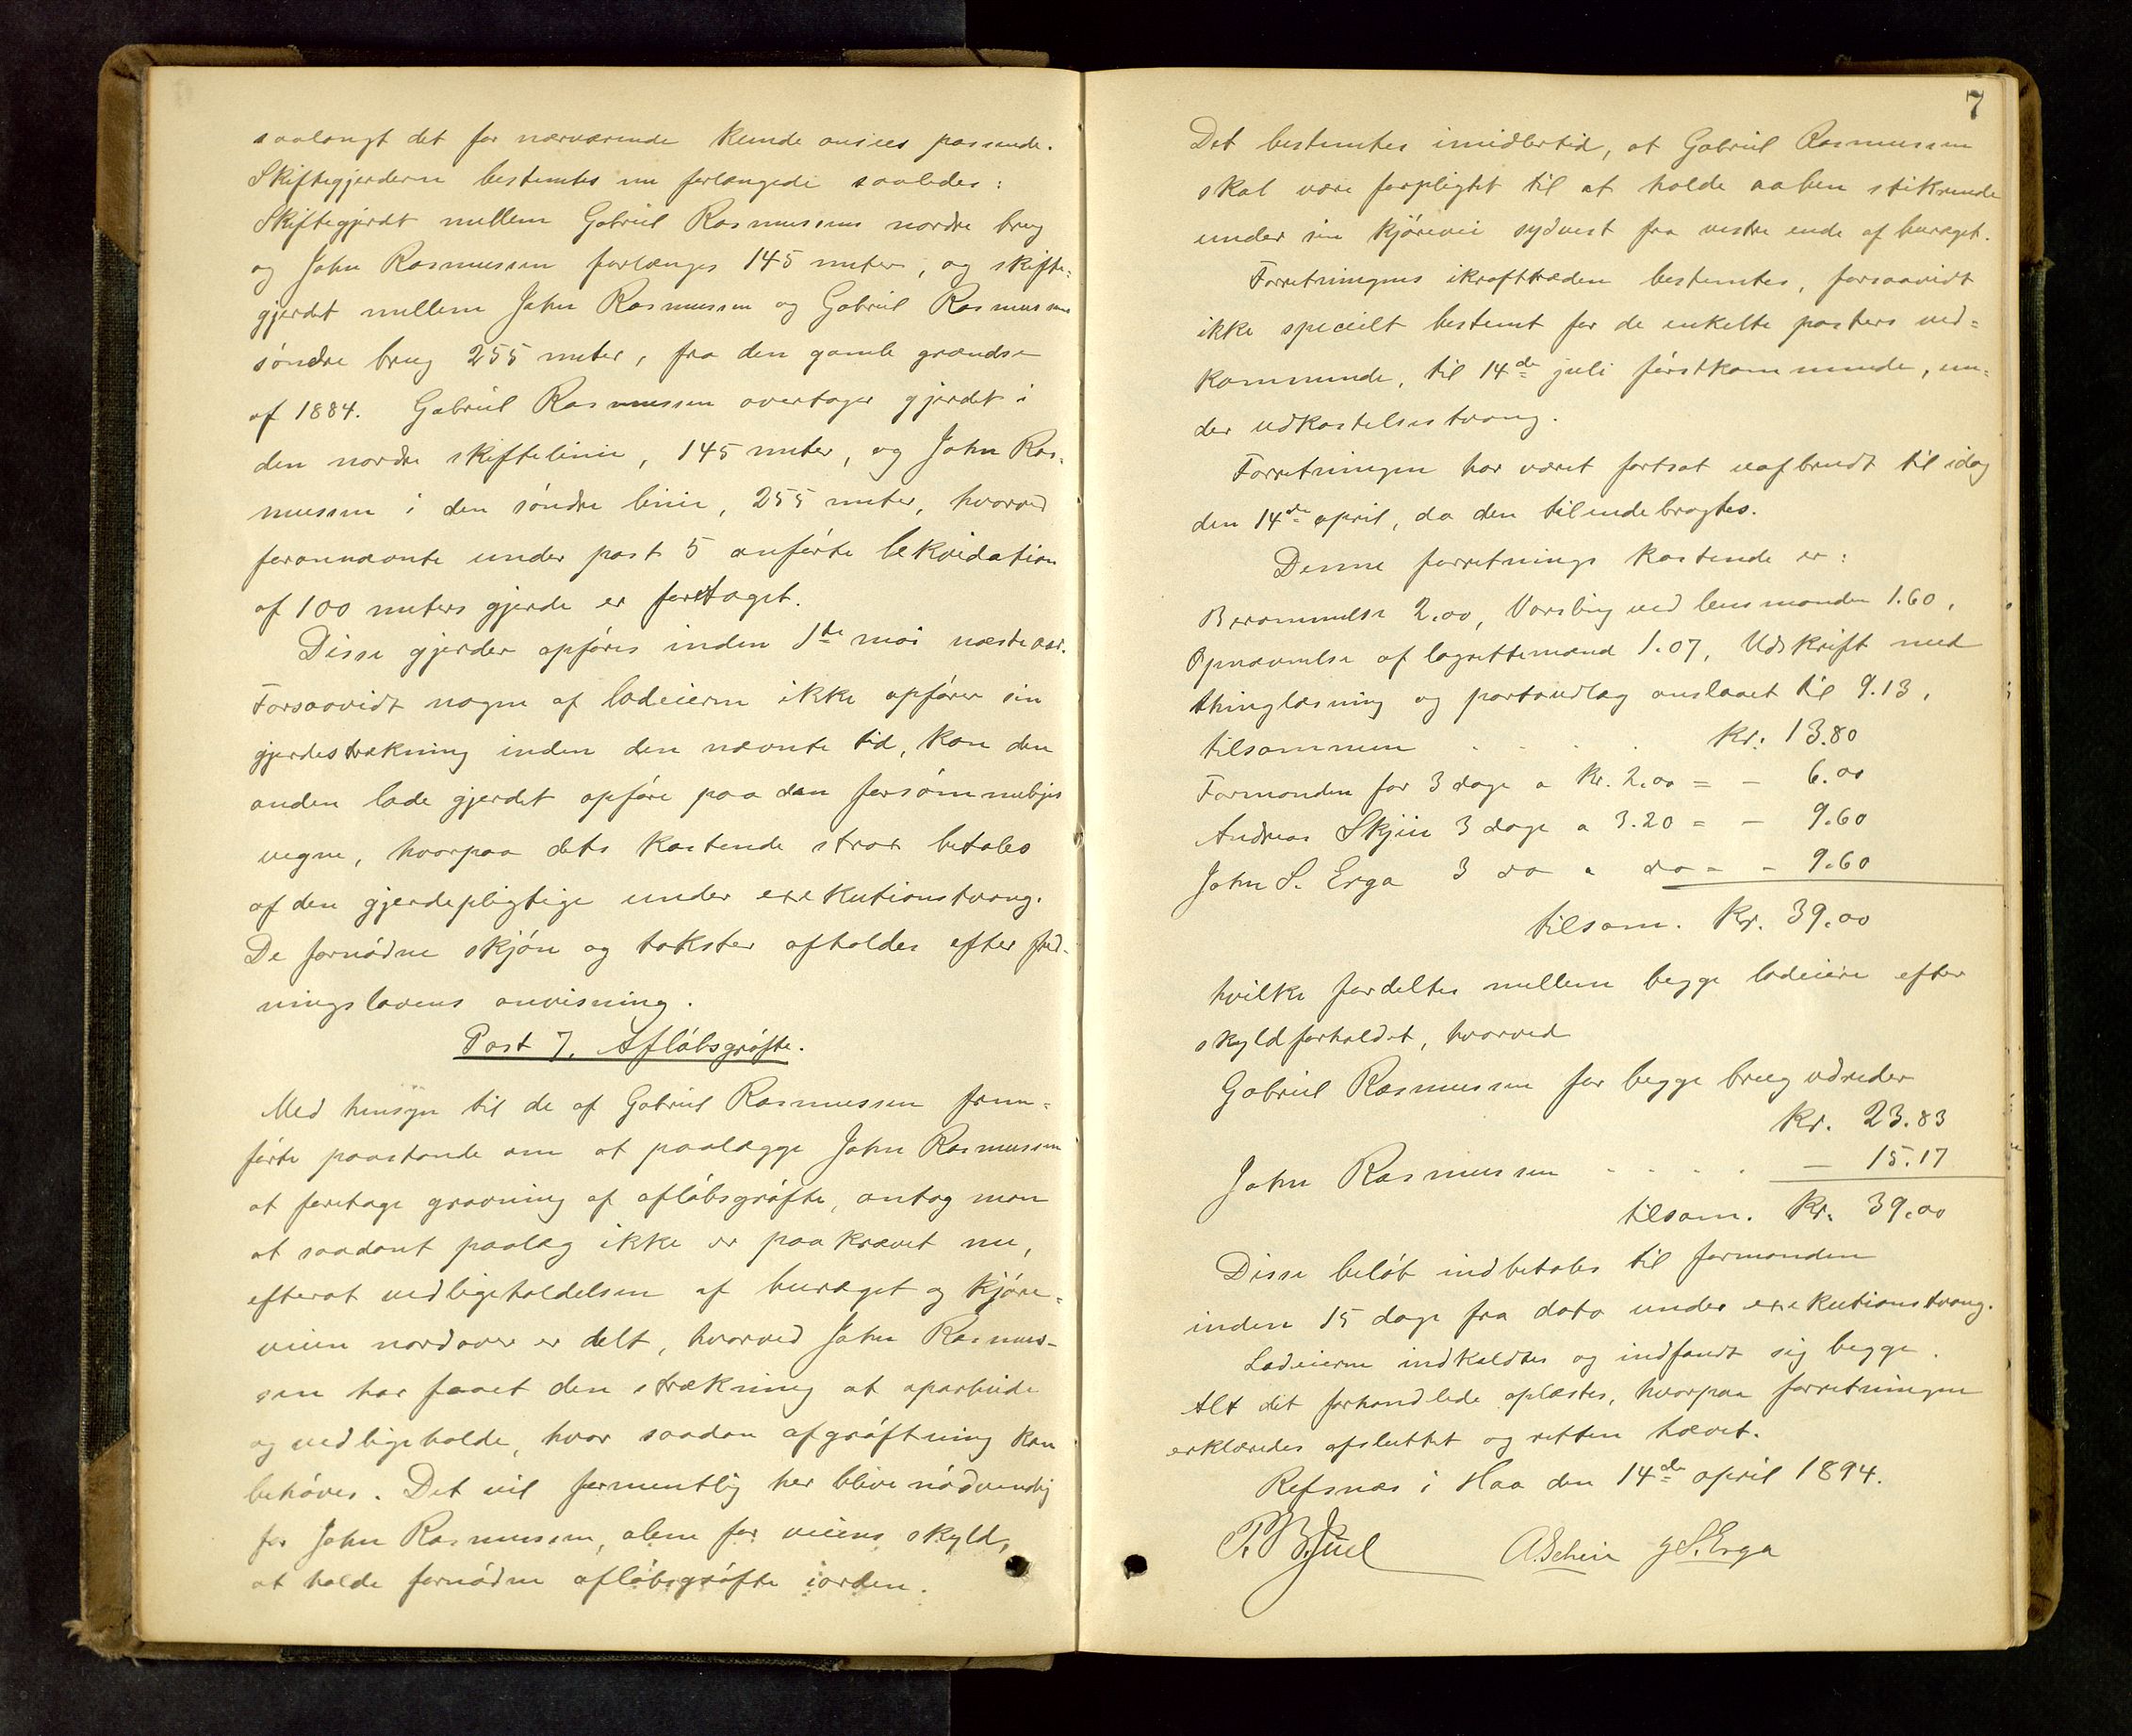 saalangt det for nærværende kunde ansees passende.
Skiftegjerderne bestemtes nu forlængede saaledes:
Skiftegjerdet mellem Gabriel Rasmussens nordre brug
og John Rasmussen forlænges 145 meter, og skifte=
gjerdet mellem John Rasmussen og Gabriel Rasmussens
søndre brug 255 meter, fra den gamle grændse
af 1884. Gabriel Rasmussen overtager gjerdet i
den nordre skiftelinie, 145 meter, og John Ras-
mussen i den søndre linie, 255 meter, hvorved
forannævnte under post 5 anførte lekvidation
af 100 meters gjerde er foretaget.
Disse gjerder opføres inden 1ste mai næste aar.
Forsaavidt nogen af lodeierne ikke opfører sin
gjerdestrækning inden den nævnte tid, kan den
anden lade gjerdet opføre paa den forsømmeliges
vegne, hvorpaa dets kostende strax betales
af den gjerdepligtige under exekutionstvang.
De fornødne skjøn og takster afholdes efter fred-
ningslovens anvisning.
Post 7. Afløbsgrøfte.
Med hensyn til de af Gabriel Rasmussen frem=
førte paastande om at paalægge John Rasmussen
at foretage gravning af afløbsgrøfte, antog man
at saadant paalæg ikke er paakrævet nu,
efterat vedligeholdelsen af huræget og kjøre=
veien nordover er delt, hvorved John Rasmus-
sen har faaet den strækning at oparbeide
og vedligeholde, hvor saadan afgrøftning kan
behøves. Det vil formentlig her blive nødvendig
for John Rasmussen, alene for veiens skyld,
at holde fornødne afløbsgrøfte iorden.
7
Det bestemtes imidlertid, at Gabriel Rasmussen
skal være forpligtet til at holde aaben stikrende
under sin kjørevei sydvest fra vestre ende af huræget.
Forretningens ikrafttræden bestemtes, forsaavidt
ikke specielt bestemt for de enkelte posters ved=
kommende, til 14de juli førstkommende, un=
der udkastelsestvang.
Forretningen har været fortsat uafbrudt til idag
den 14de april, da den tilendebragtes.
Denne forretnings kostende er:
Berammelse 2.00, Varsling ved lensmanden 1.60,
Opnævnelse af lagrettemænd 1.07, Udskrift med
thinglæsning og portoudlæg anslaaet til 9.13,
tilsammen . . . . Kr. 13.80
Formanden for 3 dage a Kr. 2.00 = - 6.00
Andreas Skjeie 3 dage a 3.20 = - 9.60
John S. Erga 3 do a do = - 9.60
tilsam. Kr. 39.00
hvilke fordeltes mellem begge lodeiere efter
skyldforholdet, hvorved
Gabriel Rasmussen for begge brug udreder
Kr. 23.83
John Rasmussen . . . . . - 15.17
tilsam. Kr. 39.00
Disse beløb indbetales til formanden
inden 15 dage fra dato under exekutionstvang.
Lodeierne indkaldtes og indfandt sig begge.
Alt det forhandlede oplæstes, hvorpaa forretningen
erklæredes afsluttet og retten hævet.
Refsnæs i Haa den 14de april 1894.
P. B. Juel A. Scheie J S. Erga